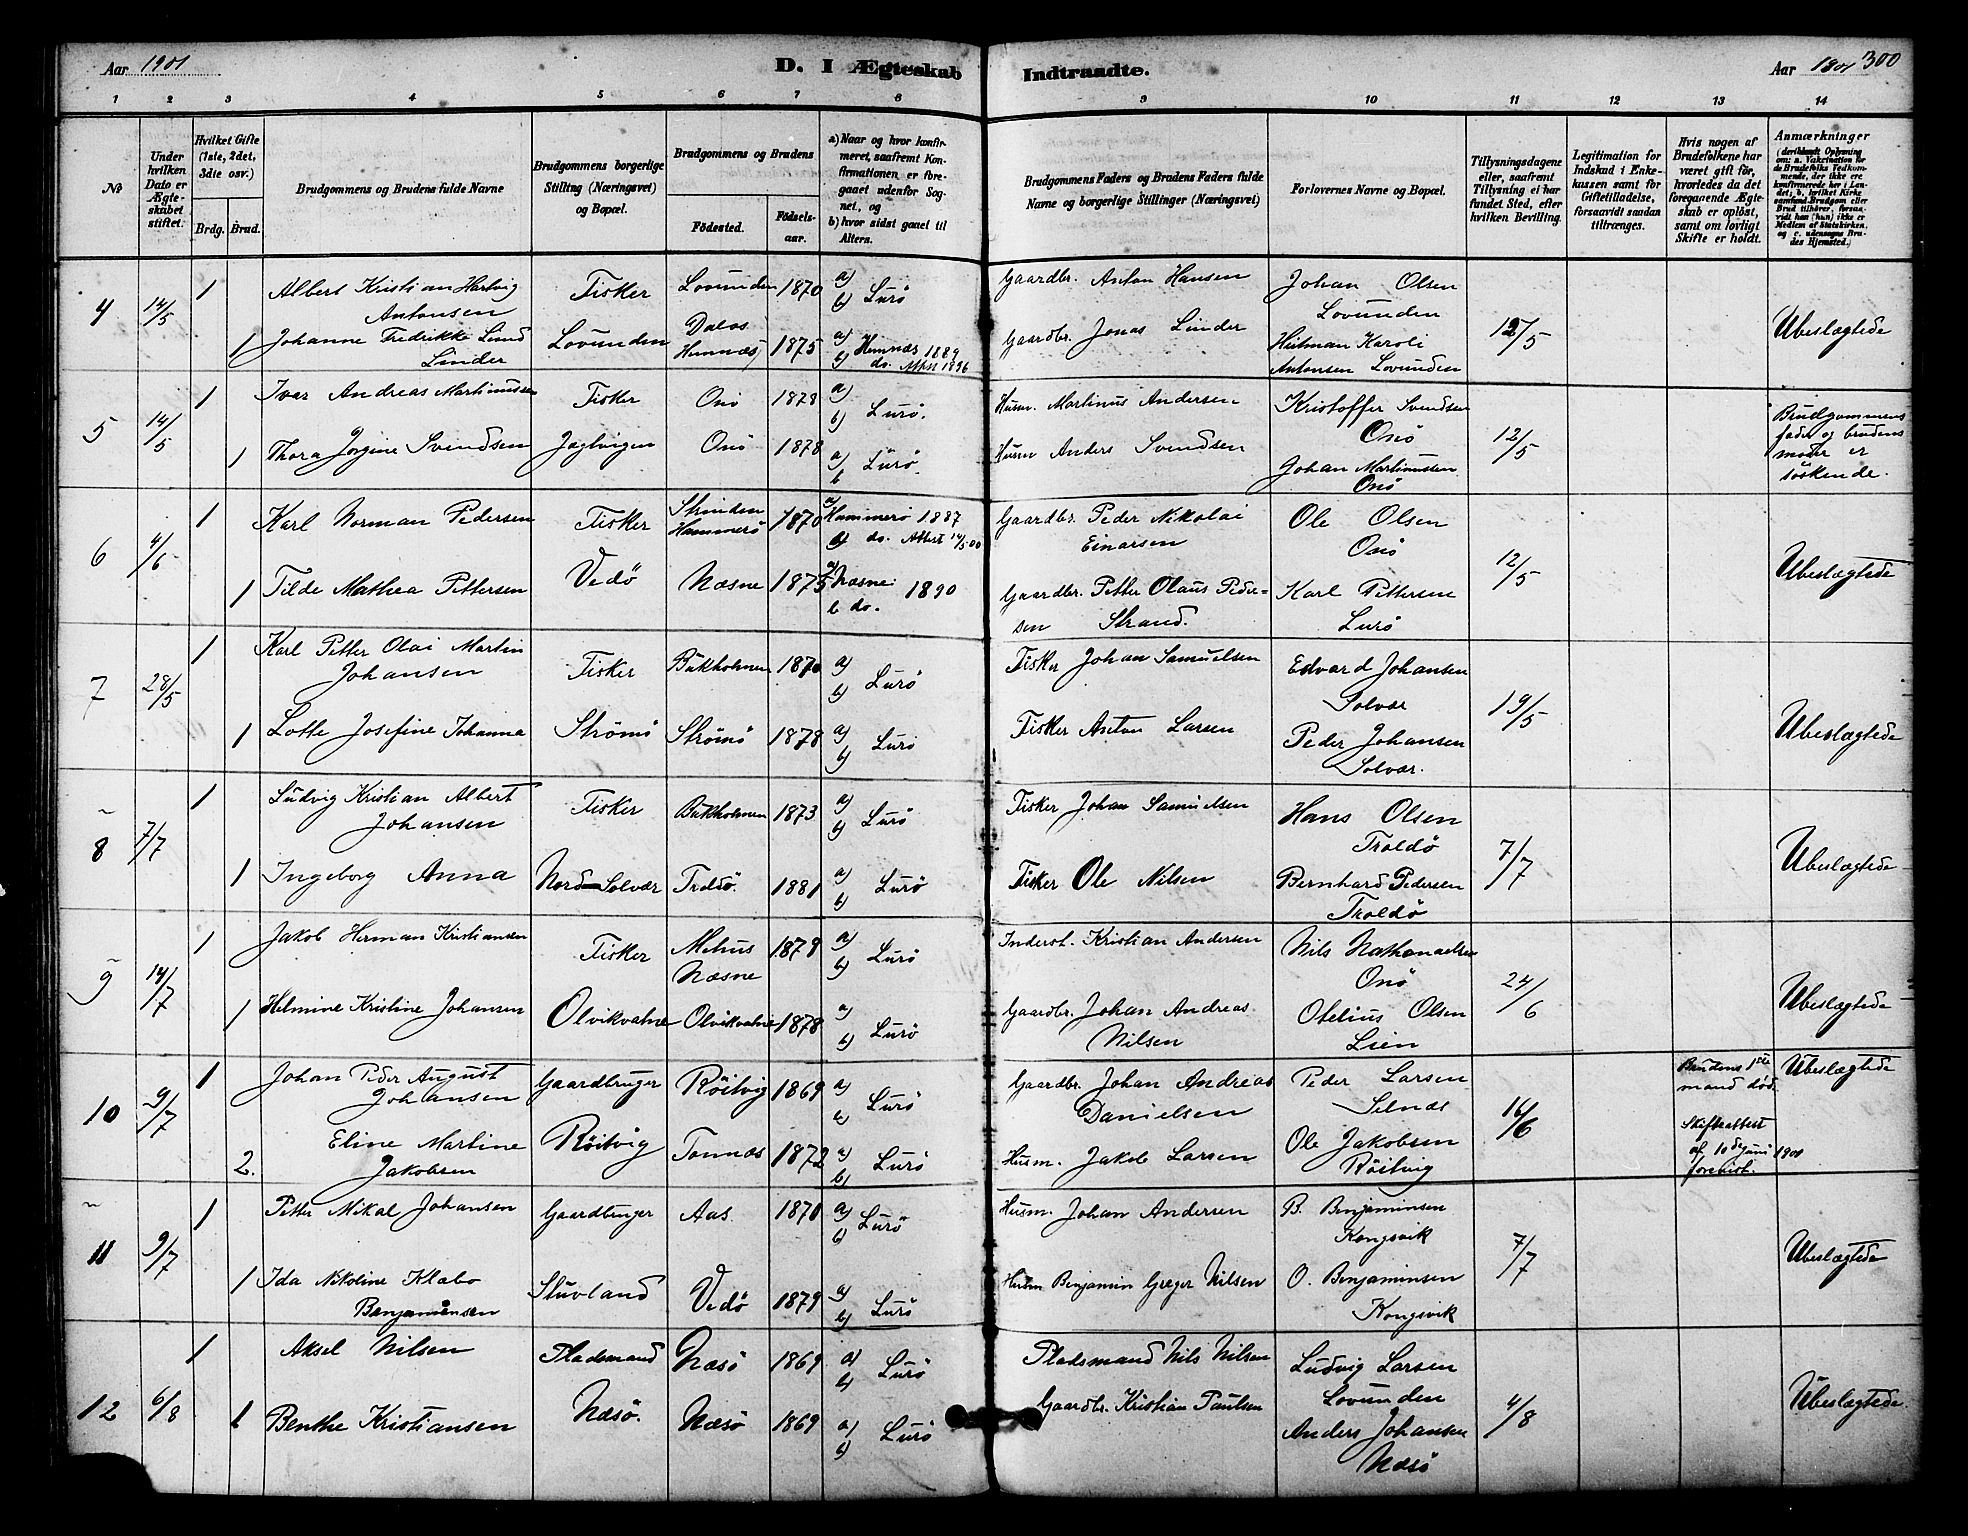 Aar 1901
D. I Ægteskab Indtraadte.
Aar 1901 300
1 2 3 4 5 6 7 8 9 10 11 12 13 14
No
Under hvilken Dato er Ægteskabet stiftet.
Hvilket Gifte (1ste, 2det, 3die osv.)
Brdg. Brud.
Brudgommens og Brudens fulde Navne
Brudgommens borgerlige Stilling (Næringsvei) og Bopæl.
Brudgommens og Brudens
Födested. Födselsaar.
a) Naar og hvor konfirmeret, saafremt Konfirmationen er foregaaet udenfor Sognet, og
b) hvor sidst gaaet til Alters.
Brudgommens Faders og Brudens Faders fulde Navne og borgerlige Stillinger (Næringsvei)
Forlovernes Navne og Bopæl.
Tillysningsdagene eller, saafremt Tillysning ei har fundet Sted, efter hvilken Bevilling.
Legitimation for Indskud i Enkekassen samt for Giftetilladelse, forsaavidt saadan tiltrænges.
Hvis nogen af Brudefolkene har været gift för, hvorledes da det foregaaende Ægteskab er oplöst, samt om lovligt Skifte er holdt.
Anmærkninger (deriblandt Oplysning om: a. Vakcination for de Brudefolks Vedkommende, der ikke ere konfirmerede her i Landet; b. hvilket Kirkesamfund Brudgom eller Brud tilhörer, forsaavidt han (hun) ikke er Medlem af Statskirken, og c. udensogns Brudes Hjemsted.)
4 14/5 1 Albert Kristian Hartvig Antonsen Fisker Lovunden 1870 a) b) Lurö Gaardbr. Anton Hansen Johan Olsen Lovunden 12/5 Ubeslægtede
1 Johanne Fredrikke Lund Linder Lovunden Dalos Hemnæs 1875 a) Hemnæs 1889 b) do. 1896 Gaardbr. Jonas Linder Heitman Karoli Antonsen Lovunden
5 14/5 1 Ivar Andreas Martinussen Fisker Onö 1878 a) b) Lurö. Husm. Martinus Andersen Kristoffer Svendsen Onö 12/5 Brudgommens fader og brudens moder er söskende.
1 Thora Jörgine Svendsen Jægtvigen Onö 1878 a) b Lurö. Husm Anders Svendsen Johan Martinussen Onö
6 4/6 1 Karl Norman Pedersen Fisker Hammerö 1870 a) Hammerö 1887 b) do. Attest 14/5 00 Gaardbr. Peder Nikolai Einarsen Ole Olsen Onö 12/5 Ubeslægtede
1 Tilde Mathea Pettersen Vedö Næsne 1875 a) Næsne 1890 b do. Gaardbr. Petter Olaus Pedersen Strand. Karl Pettersen Lurö
7 28/5 1 Karl Petter Olai Martin Johansen Fisker Bukholmen 1870 a) b) Lurö Fisker Johan Samuelsen Edvard Johansen Solvær 19/5 Ubeslægtede
1 Lotte Josefine Johanna Strömö Strömö 1878 a) b) Lurö Fisker Anton Larsen Peder Johansen Solvær.
8 7/7 1 Ludvig Kristian Albert Johansen Fisker Bukholmen 1873 a) b) Lurö Fisker Johan Samuelsen Hans Olsen Troldö 7/7 Ubeslægtede
1 Ingeborg Anna Nord-Solvær Troldö. 1881 a) b) Lurö Fisker Ole Nilsen Bernhard Pedersen Troldö
9 14/7 1 Jakob Herman Kristiansen Fisker Mehus Næsne 1879 a) b) Lurö Inderst. Kristian Andersen Nils Nathanaelsen Onö 24/6 Ubeslægtede
1 Helmine Kristine Johansen Olvikvatne Olvikvatne 1878 a) b) Lurö Gaardbr. Johan Andreas Nilsen Otelius Olsen Lien
10 9/7 1 Johan Peder August Johansen Gaardbruger Röitvig 1869 a) b) Lurö Gaardbr. Johan Andreas Danielsen Peder Larsen Selnæs 16/6 Brudens 1ste mand död. Ubeslægtede
2. Eline Martine Jakobsen Röitvig Tonnæs 1872 a) b) Lurö Husm. Jakob Larsen Ole Jakobsen Röitvig Skifteattest af 10de juni 1901 forevist.
11 9/7 1 Petter Mikal Johansen Gaardbruger Aas 1870 a) b) Lurö Husm. Johan Andersen B. Benjaminsen Kongsvik 7/7 Ubeslægtede
1 Ida Nikoline Klæbo Benjaminsen Stuvland Vedö 1879 a) b) Lurö Husm Benjamin Greger Nilsen O. Benjaminsen Kongsvik
12 6/8 1 Aksel Nilsen Pladsmand Næsö 1869 a) b) Lurö Pladsmand Nils Nilsen Ludvig Larsen Lovunden 4/8 Ubeslægtede
1 Benthe Kristiansen Næsö. Næsö 1869 a) b) Lurö Gaardbr. Kristian Paulsen Anders Johansen Næsö